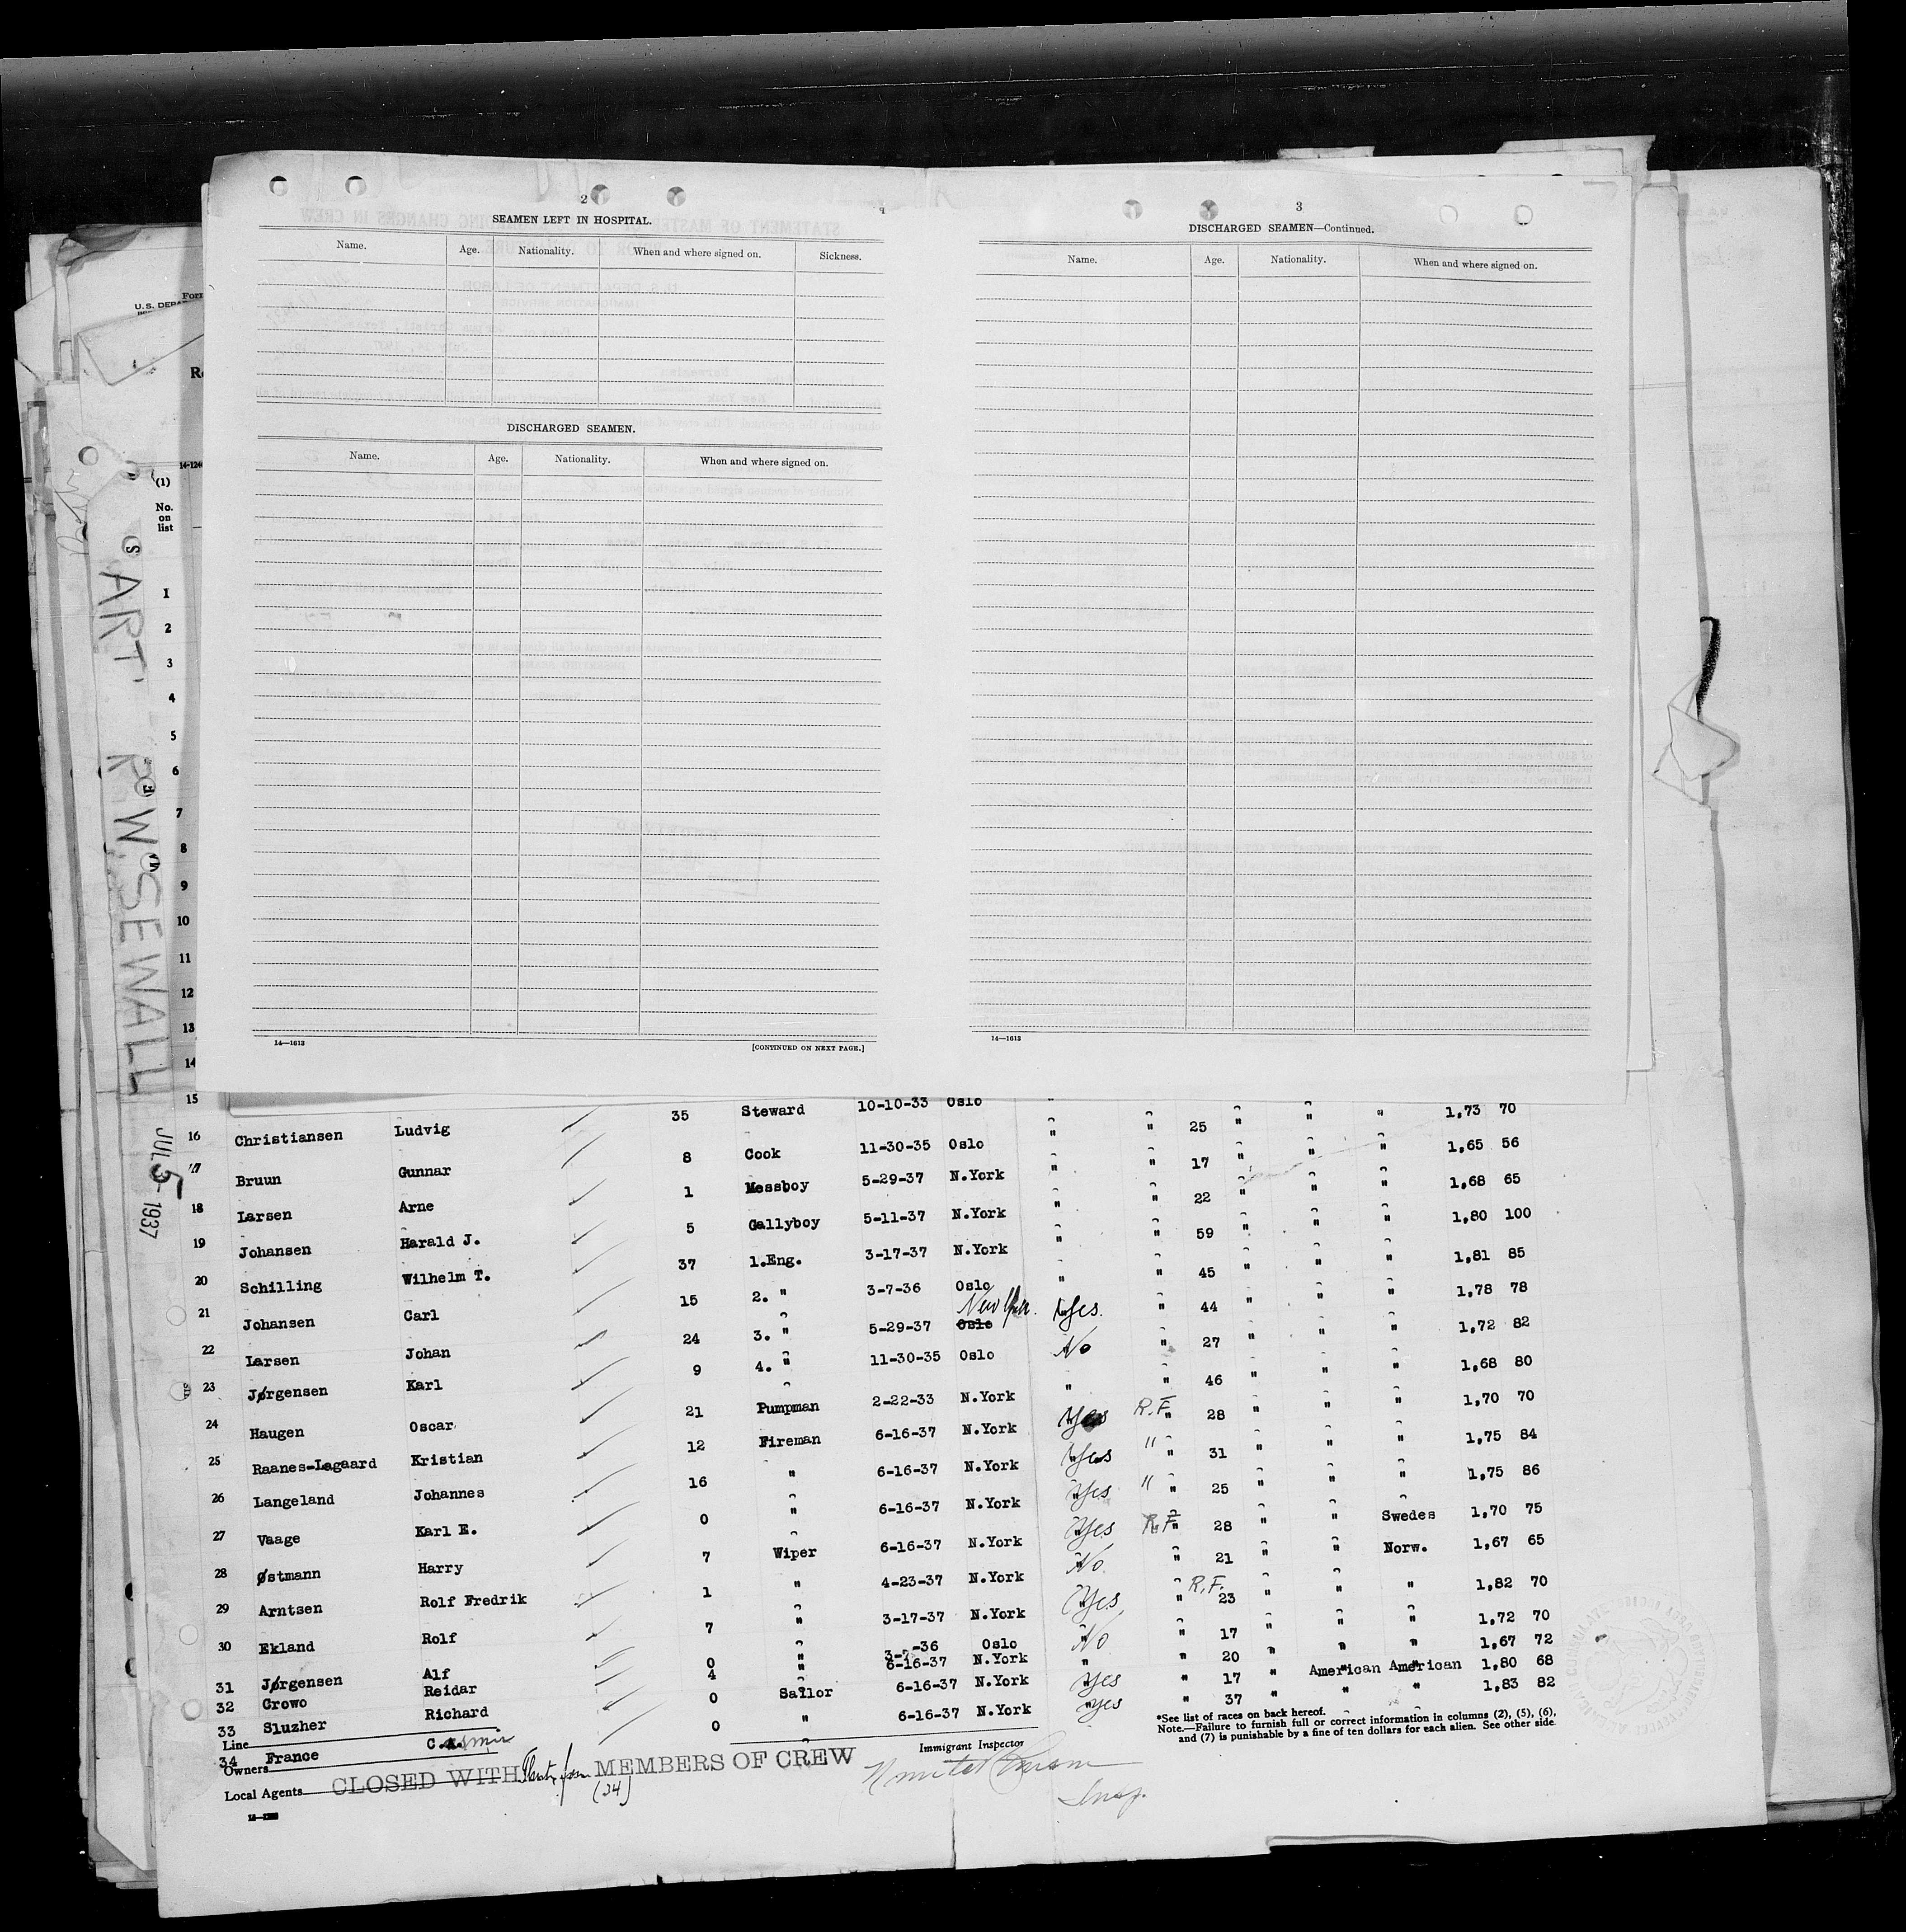 2
SEAMEN LEFT IN HOSPITAL.
Name. Age. Nationality. When and where signed on. Sickness.
DISCHARGED SEAMEN.
Name. Age. Nationality. When and where signed on.
14—1613 [CONTINUED ON NEXT PAGE.]
3
DISCHARGED SEAMEN—Continued.
Name. Age. Nationality. When and where signed on.
14—1613
Form
U.S. DEPA
14-124
(1)
No.
on
list
1
2
3
4
5
6
7
8
9
10
11
12
13
14
15
ART R W SEWALL
JUL 5 1937
35 Steward 10-10-33 Oslo " " " " " 1,73 70
16 Christiansen Ludvig 8 Cook 11-30-35 Oslo " " 25 " " " 1,65 56
17 Bruun Gunnar 1 Messboy 5-29-37 N.York " " 17 " " " 1,68 65
18 Larsen Arne 5 Gallyboy 5-11-37 N.York " " 22 " " " 1,80 100
19 Johansen Harald J. 37 1.Eng. 3-17-37 N.York " " 59 " " " 1,81 85
20 Schilling Wilhelm T. 15 2. " 3-7-36 Oslo " " 45 " " " 1,78 78
21 Johansen Carl 24 3. " 5-29-37 Oslo New York Yes. " 44 " " " 1,72 82
22 Larsen Johan 9 4. " 11-30-35 Oslo No " 27 " " " 1,68 80
23 Jørgensen Karl 21 Pumpman 2-22-33 N.York " " 46 " " " 1,70 70
24 Haugen Oscar 12 Fireman 6-16-37 N.York Yes R.F. " 28 " " " 1,75 84
25 Raanes-Lagaard Kristian 16 " 6-16-37 N.York Yes " " 31 " " " 1,75 86
26 Langeland Johannes 0 " 6-16-37 N.York Yes " " 25 " " " 1,70 75
27 Vaage Karl E. 7 Wiper 6-16-37 N.York Yes R.F. " 28 " " Swedes 1,67 65
28 Østmann Harry 1 " 4-23-37 N.York No " 21 " " Norw. 1,82 70
29 Arntsen Rolf Fredrik 7 " 3-17-37 N.York Yes R.F. " 23 " " " 1,72 70
30 Ekland Rolf 0 " -36 Oslo No " 17 " " " 1,67 72
31 Jørgensen Alf 4 " 6-16-37 N.York " " 20 " " " 1,80 68
32 Crowo Reidar 0 Sailor 6-16-37 N.York Yes " 17 " American American 1,83 82
33 Sluzher Richard 0 " 6-16-37 N.York Yes " 37 " " "
Line
34 France C.
Owners
Local Agents
CLOSED WITH Thirty four MEMBERS OF CREW
(34)
Immigrant Inspector
Insp.
*See list of races on back hereof.
Note.—Failure to furnish full or correct information in columns (2), (5), (6),
and (7) is punishable by a fine of ten dollars for each alien. See other side.